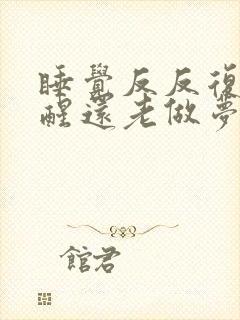 睡覺反反復
醒還老做夢
館君